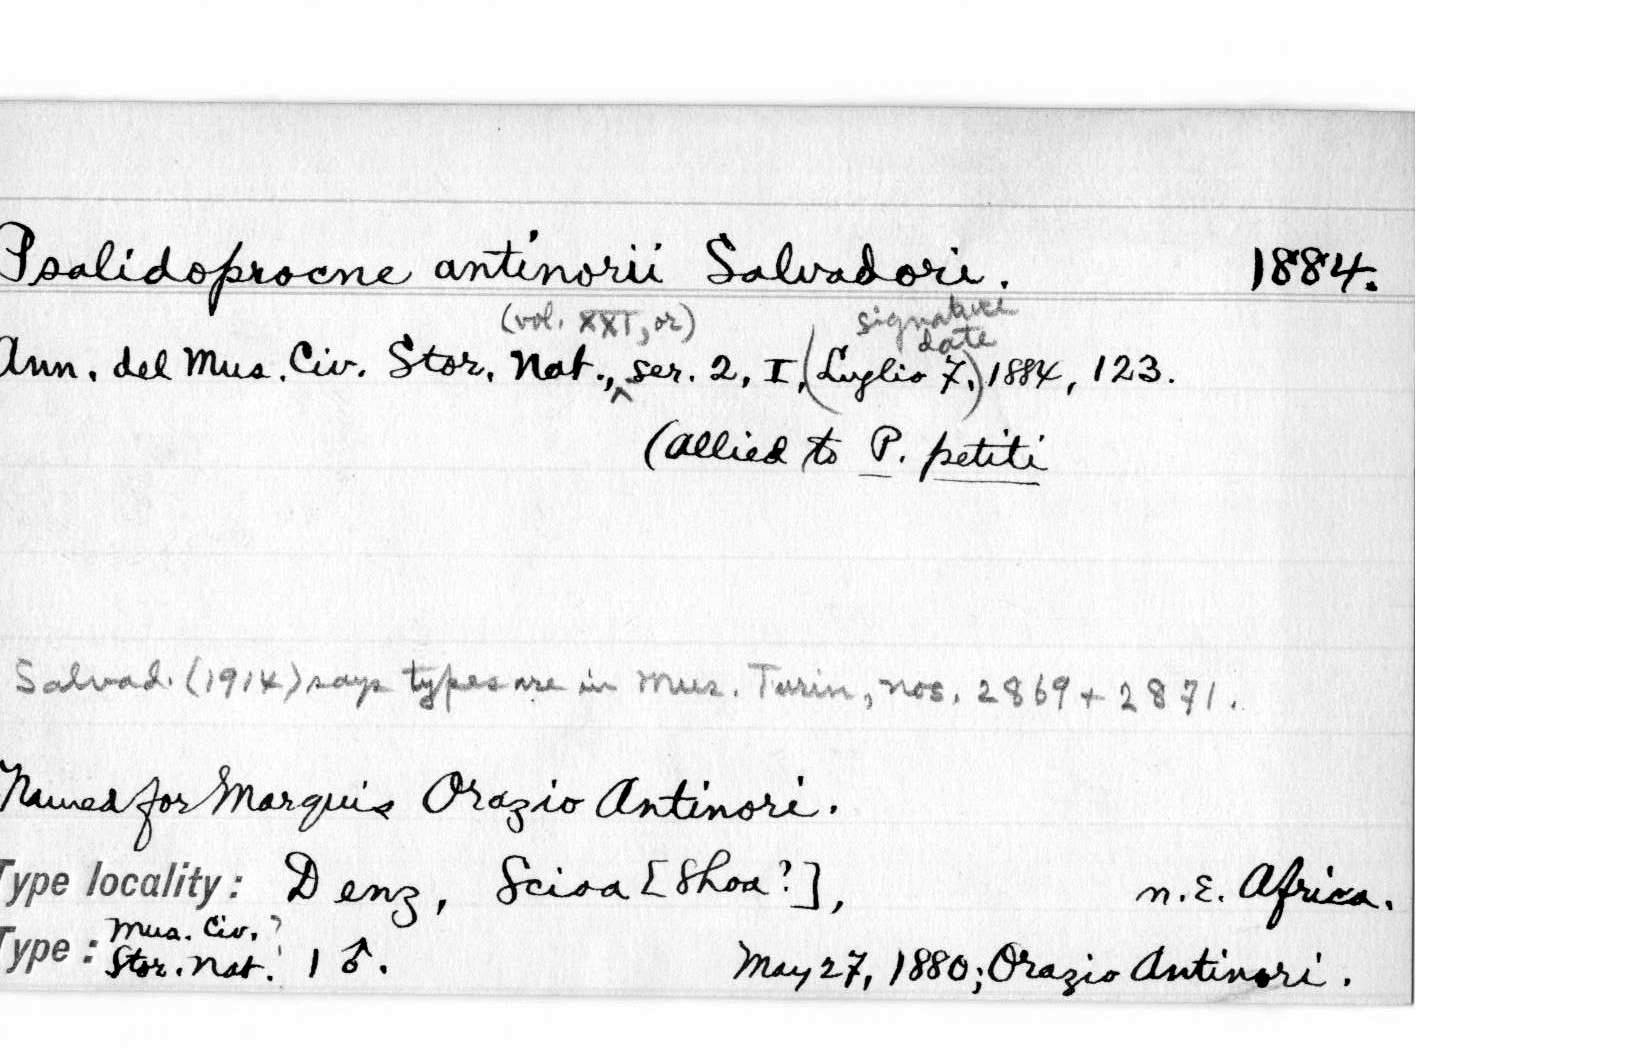 Psalidoprocne antinorii Salvadori. 1884.
(vol. XXI, or) signature date
Ann. del Mus. Civ. Stor. Nat., ser. 2, I, (Luglio 7,) 1884, 123.
(allied to P. petiti
Salvad. (1914) says types are in Mus. Turin, nos. 2869 + 2871.
Named for Marquis Orazio Antinori.
Type locality: Denz, Scioa [Shoa?], n.E. Africa.
Type: Mus. Civ. Stor. Nat.? 1 ♂. May 27, 1880; Orazio Antinori.